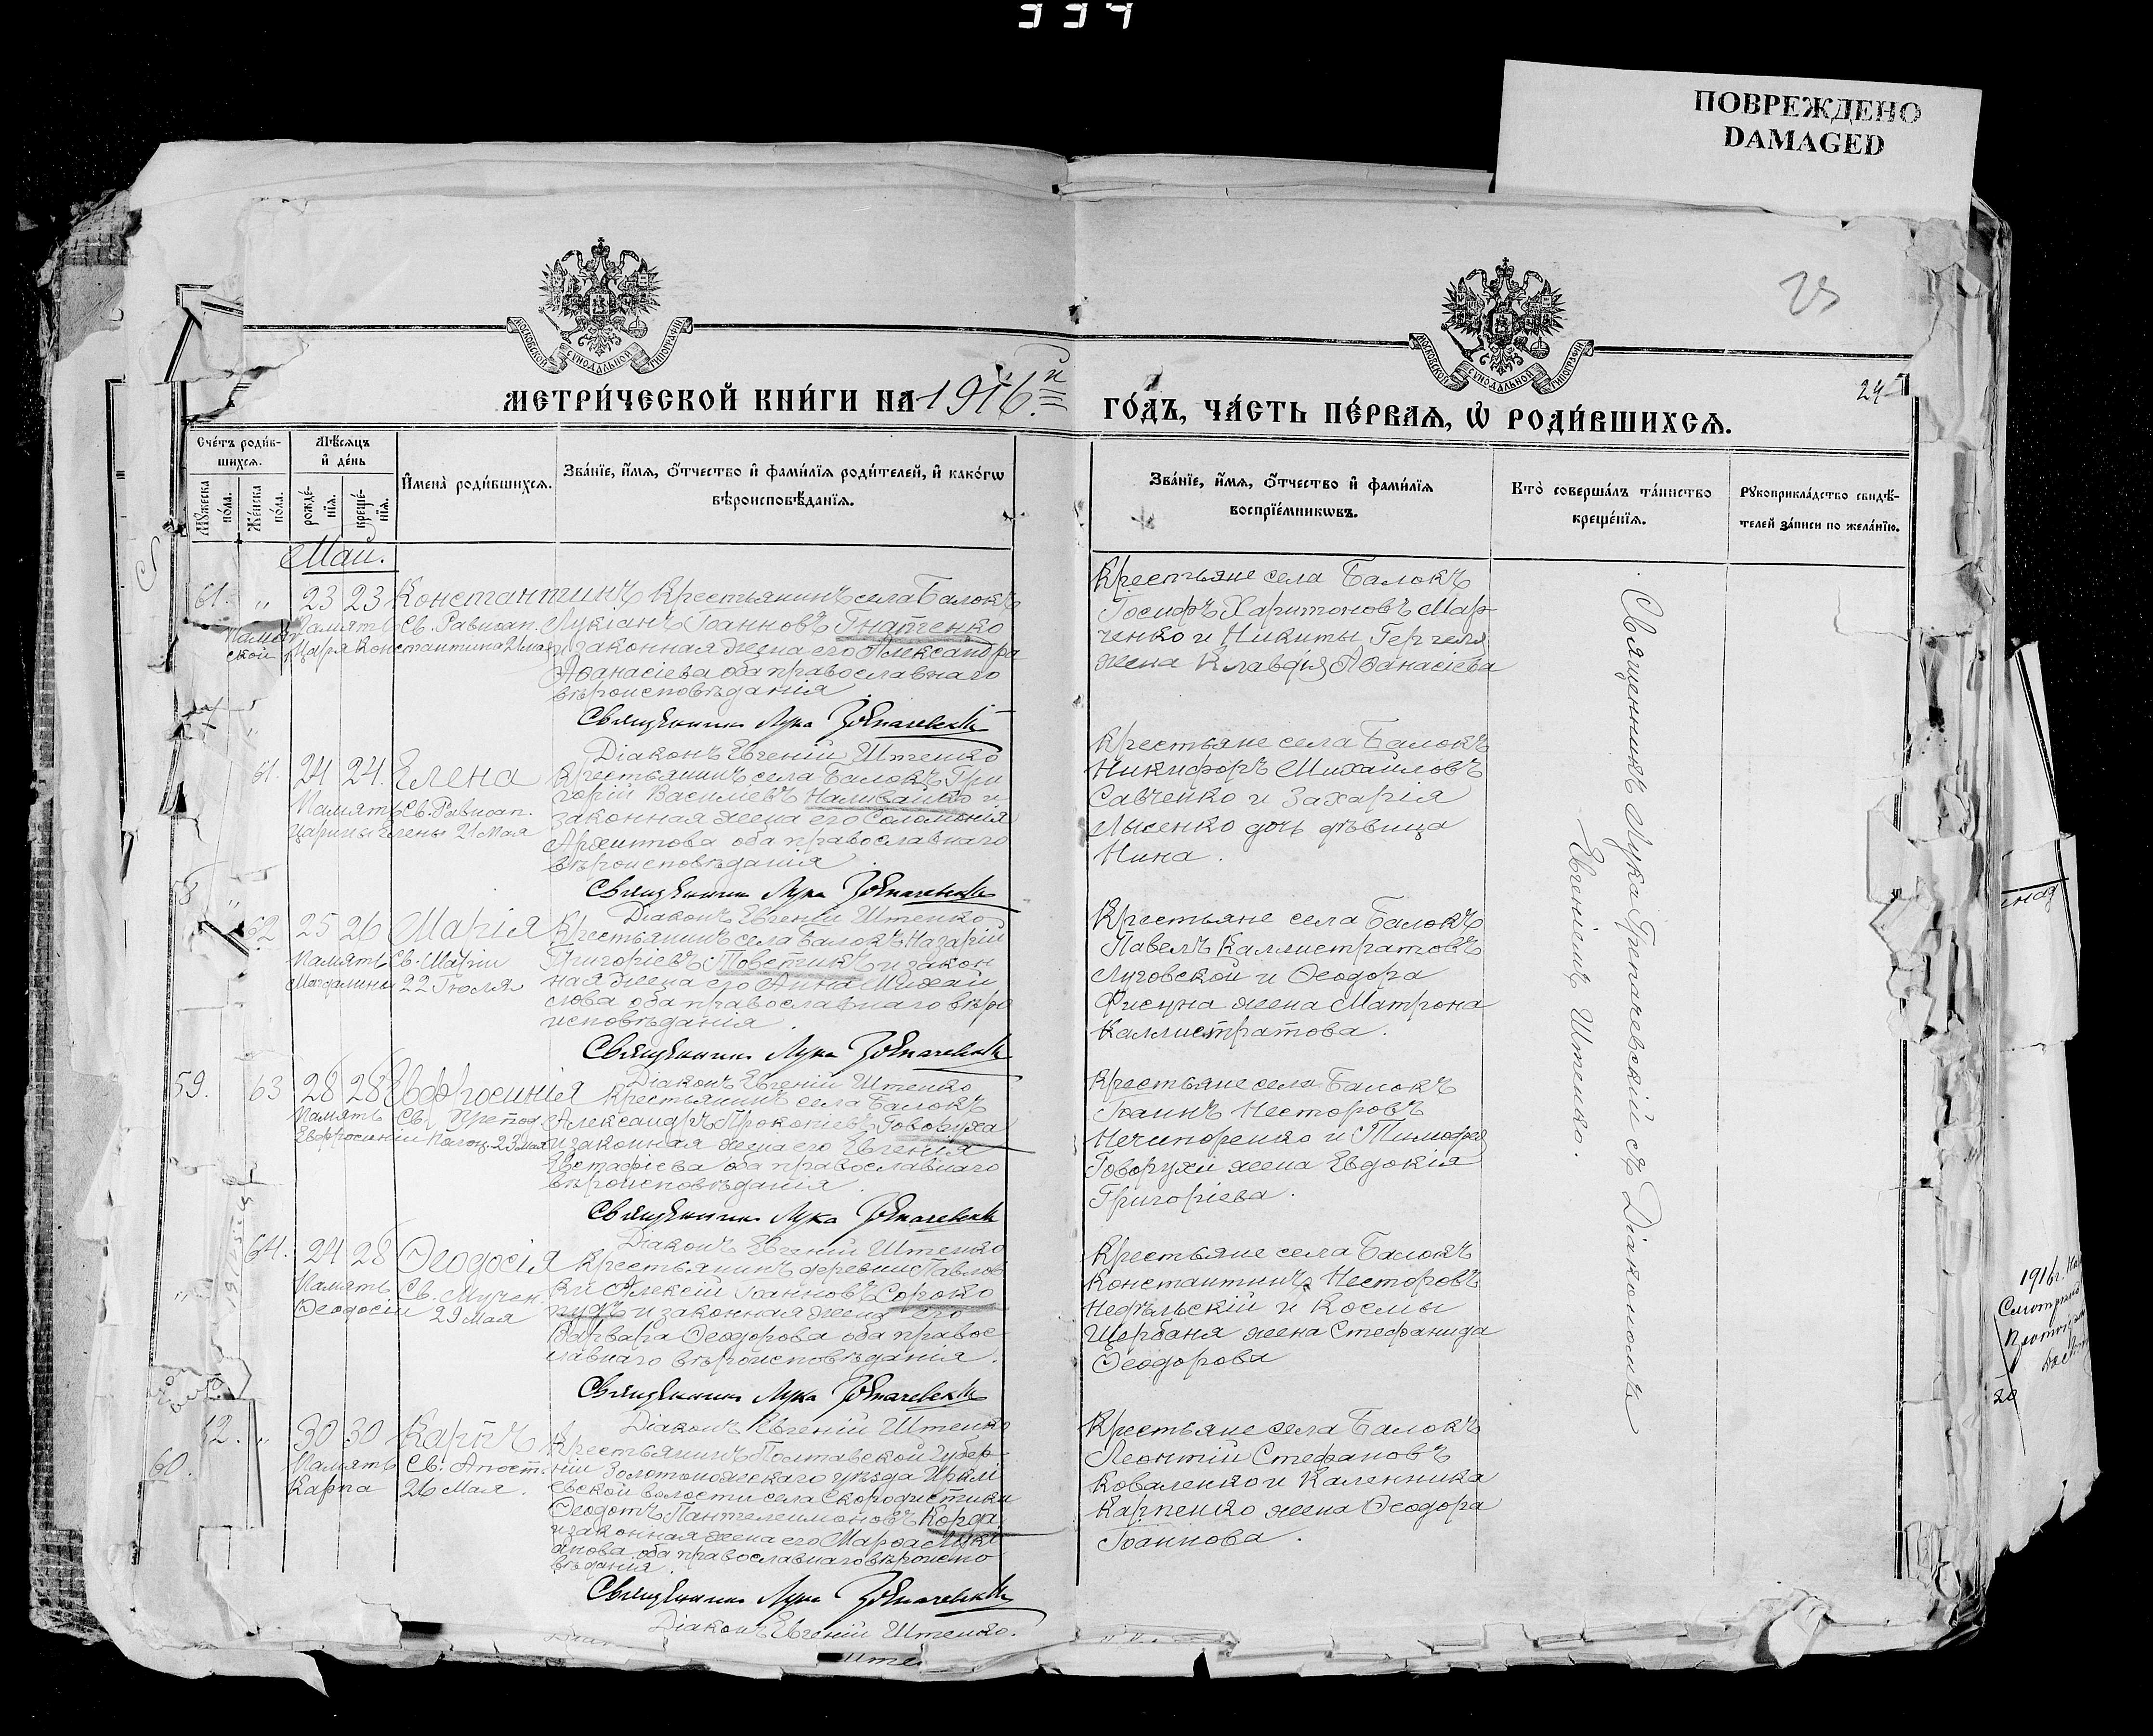 334
ПОВРЕЖДЕНО
DAMAGED
25
МОСКОВСКОЙ СУНОДАЛЬНОЙ ТИПОГРАФІИ
МОСКОВСКОЙ СУНОДАЛЬНОЙ ТИПОГРАФІИ
24
МЕТРИ́ЧЕСКОЙ КНИ́ГИ НА 1916й
ГО́ДЪ, ЧА́СТЬ ПЕ́РВАѦ, Ѡ РОДИ́ВШИХСѦ.
Сче́тъ роди́в-
шихсѧ.
Мѣ́сѧцъ
и̑ де́нь
И̑мена̀ роди́вшихсѧ.
Зва́нїе, и́мѧ, о́тчество и̑ фами́лїѧ роди́телей, и̑ како́гѡ
вѣроисповѣ́данїѧ.
Мꙋ́жеска по́ла.
Же́нска по́ла.
рожде́-нїѧ.
креще́-нїѧ.
Зва́нїе, и́мѧ, о́тчество и̑ фами́лїѧ
воспрїе́мникѡвъ.
Кто̀ соверша́лъ та́инство
креще́нїѧ.
Рꙋкоприкла́дство свидѣ́-
телей за́писи по жела́нїю.
Май.
61. " 23 23 Константинъ
Память Св. Равноап.
Царя Константина 21 мая
Крестьянинъ села Балокъ
Лукіанъ Іоанновъ Гнатенко
и законная жена его Александра
Аѳанасіева оба православнаго
вѣроисповѣданія
Священникъ Лука
Діаконъ Евгеній Штепко
Крестьяне села Балокъ
Іосифъ Харитоновъ Мар-
ченко и Никиты Гергеля
жена Клавдія Аѳанасіева
61. 24 24. Елена
Память Св. Равноап.
Царицы Елены 21 Мая
Крестьянинъ села Балокъ Гри
горій Василіевъ Наливайко и
законная жена его Соломонія
Архиппова оба православнаго
вѣроисповѣданія
Священникъ Лука
Діаконъ Евгеній Штепко
Крестьяне села Балокъ
Никифоръ Михаиловъ
Савченко и Захарія
Лысенко дочь дѣвица
Нина.
58
62 25 26 Марія
Память Св. Маріи
Магдалины 22 Іюля
Крестьянинъ села Балокъ Назарій
Григоріевъ Товстикъ и закон
ная жена его Анна Михаи
лова оба православнаго вѣро
исповѣданія
Священникъ Лука
Діаконъ Евгеній Штепко
Крестьяне села Балокъ
Павелъ Каллистратовъ
Луговской и Ѳеодора
жена Матрона
Каллистратова.
59. 63 28 28 Евфросинія
Память Св. Препод.
Евфросиніи Полоц. 23 мая
Крестьянинъ села Балокъ
Александръ Прокопіевъ Говоруха
и законная жена его Евгенія
Евстафіева оба православнаго
вѣроисповѣданія.
Священникъ Лука
Діаконъ Евгеній Штепко
Крестьяне села Балокъ
Іоаннъ Несторовъ
Нечипоренко и Тимофея
Говорухи жена Евдокія
Григоріева.
64. 24 28 Ѳеодосія
Память Св. Мучен
Ѳеодосіи 29 Мая
Крестьянинъ деревни Павлов
ки Алексій Іоанновъ Сороко
пудъ и законная жена его
Варвара Ѳеодорова оба правос-
лавнаго вѣроисповѣданія.
Священникъ Лука
Діаконъ Евгеній Штепко
Крестьяне села Балокъ
Константинъ Несторовъ
Недѣльскій и Космы
Щербаня жена Стефанида
Ѳеодорова
60.
12. " 30 30 Карпъ
Память Св. Апост.
Карпа 26 Мая.
Крестьянинъ Полтавской губер-
ніи Золотоношскаго уѣзда Иркліи
евской волости села Скородистики
Ѳеодотъ Пантелеимоновъ Корда
и законная жена его Марѳа Луки
анова оба православнаго вѣроиспо
вѣданія.
Священникъ Лука
Діаконъ Евгеній Штепко.
Крестьяне села Балокъ
Леонтій Стефановъ
Коваленко и Каленника
Карпенко жена Ѳеодора
Іоаннова.
Священникъ Лука Грепачевскій съ Діакономъ
Евгеніемъ Штепко.
1916 г.